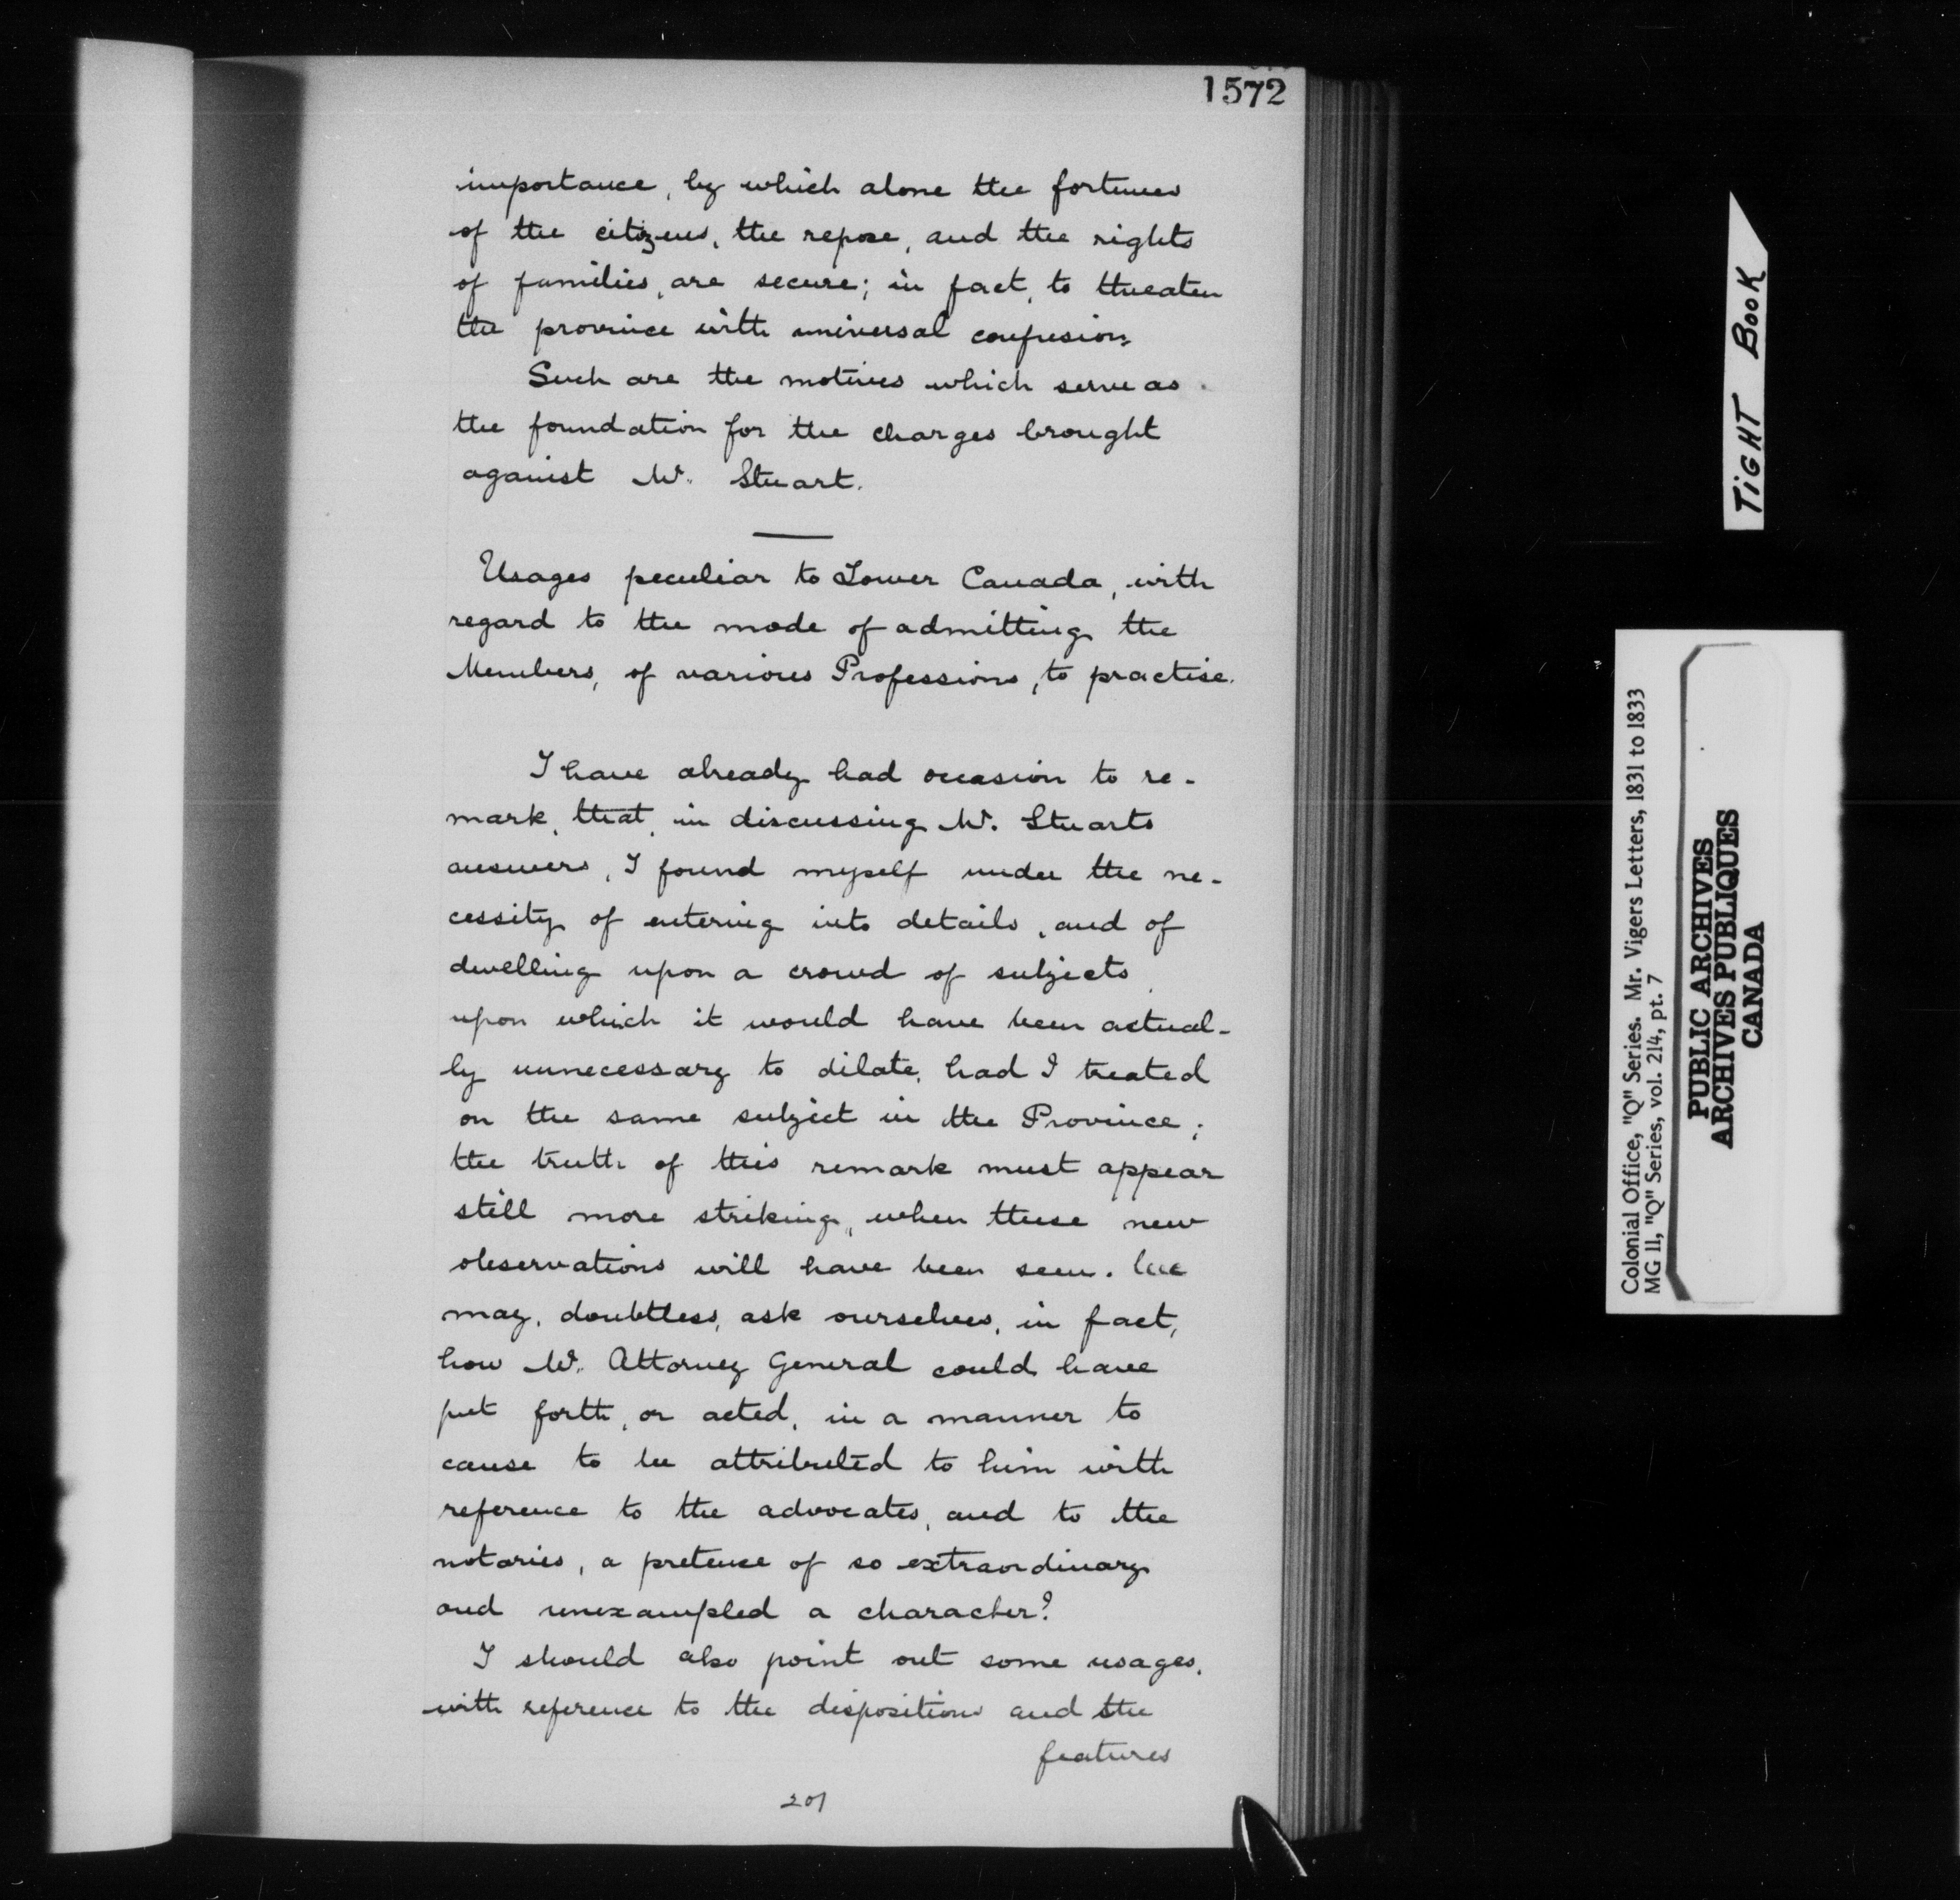 1572
importance, by which alone the fortunes
of the citizens, the repose, and the rights
of families, are secure; in fact, to threaten
the province with universal confusion.
Such are the motives which serve as
the foundation for the charges brought
against Mr. Stuart.
Usages peculiar to Lower Canada, with
regard to the mode of admitting the
Members, of various Professions, to practise.
I have already had occasion to re-
mark, that, in discussing Mr. Stuarts
answers, I found myself under the ne-
cessity of entering into details, and of
dwelling upon a crowd of subjects
upon which it would have been actual-
ly unnecessary to dilate, had I treated
on the same subject in the Province;
the truth of this remark must appear
still more striking, when these new
observations will have been seen. We
may, doubtless, ask ourselves, in fact,
how Mr. Attorney General could have
put forth, or acted, in a manner to
cause to be attributed to him with
reference to the advocates, and to the
notaries, a pretence of so extraordinary
and unexampled a character?
I should also point out some usages,
with reference to the dispositions and the
features
201
TIGHT BOOK
Colonial Office, "Q" Series. Mr. Vigers Letters, 1831 to 1833
MG 11, "Q" Series, vol. 214, pt. 7
PUBLIC ARCHIVES
ARCHIVES PUBLIQUES
CANADA